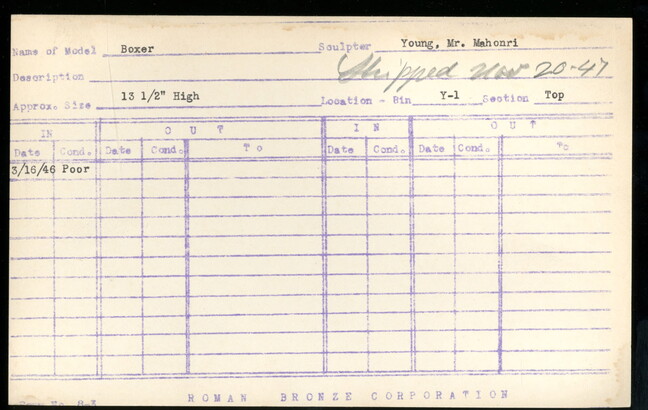 Name of Model Boxer Sculptor Young, Mr. Mahonri
Description Shipped Nov 20-47
Approx. Size 13 1/2" High Location - Bin Y-1 Section Top
IN OUT IN OUT
Date Cond. Date Cond. To Date Cond. Date Cond. To
3/16/46 Poor
ROMAN BRONZE CORPORATION